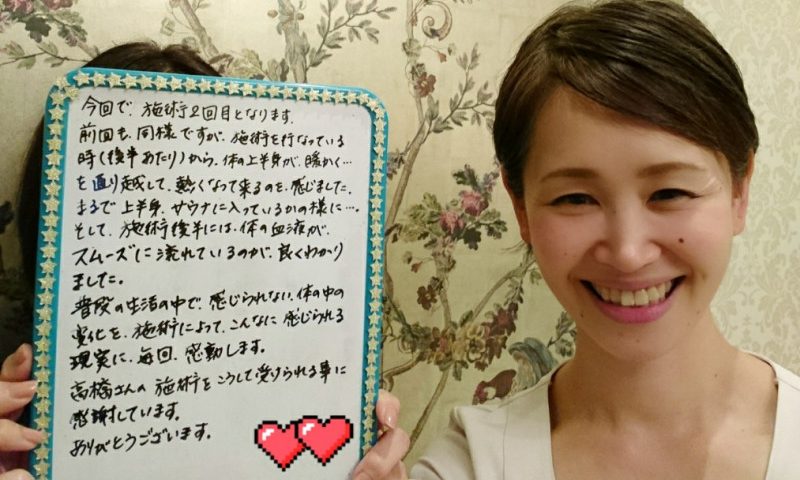 今回で、施術2回目となります。
前回も、同様ですが、施術を行なっている
時(後半あたり)から、体の上半身が、暖かく…
を通り越して、熱くなって来るのを、感じました。
まるで上半身、サウナに入っているかの様に…。
そして、施術後半には、体の血液が、
スムーズに流れているのが、良くわかり
ました。
普段の生活の中で、感じられない、体の中の
変化を、施術によって、こんなに感じられる
現実に、毎回、感動します。
高橋さんの施術をこうして受けられる事に
感謝しています。
ありがとうございます。